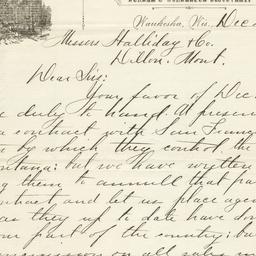 Waukesha, Wis. Dec
Messrs Halliday & Co.
Dillon, Mont.
Dear Sir;
Your favor of Dec.
duly to hand. At presen
a contract with San Franc
by which they control the
ntana; but we have written
g them to annull that par
ntract and let us place agen
as they up to date have don
our part of the country; bu
mmission on all sales